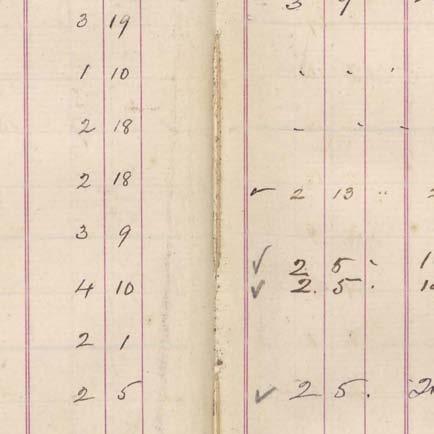 3 19
1 10
2 18
2 18
3 9
4 10
2 1
2 5
✓ 2 13 "
✓ 2 5 "
✓ 2. 5 "
✓ 2 5 .